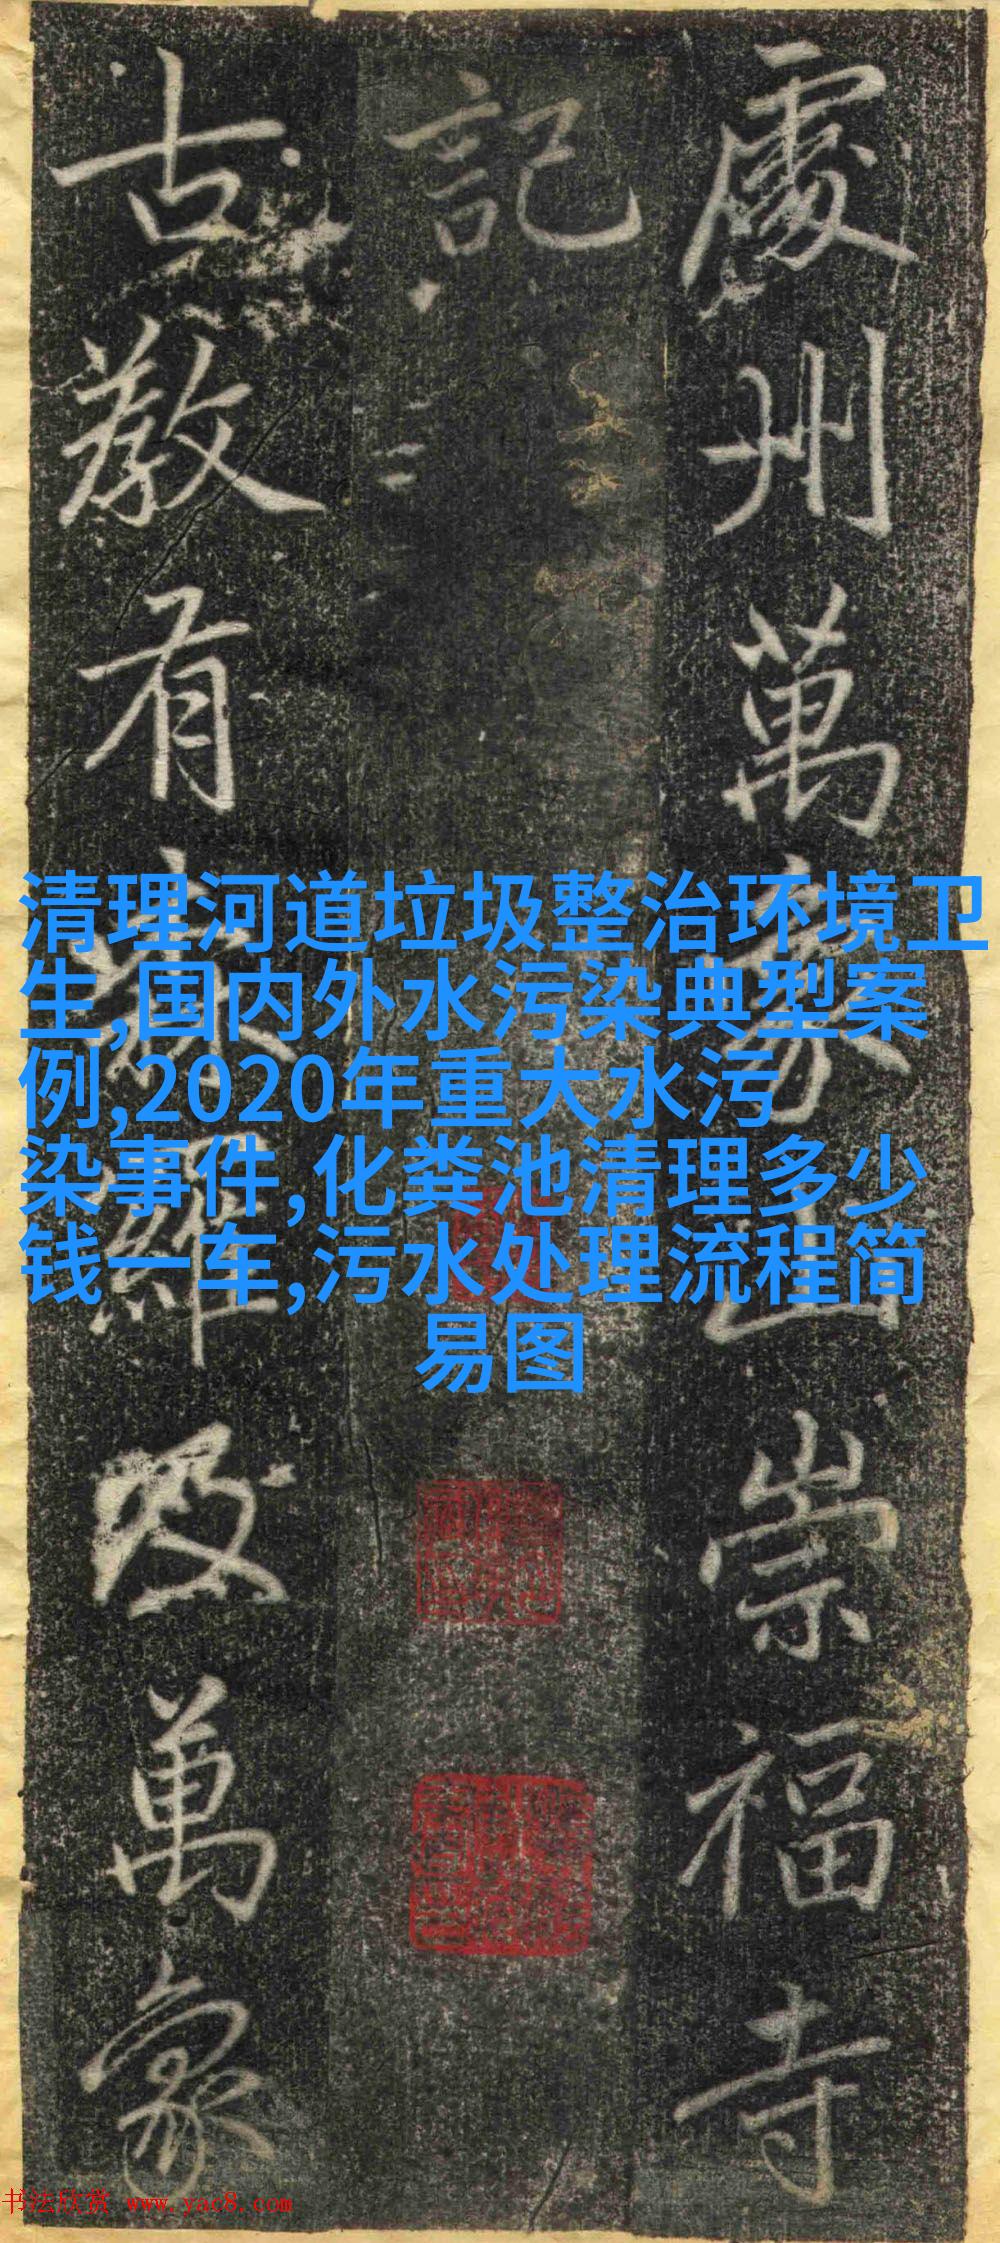 處州萬象山崇福寺
記
古教有森羅及萬象
清理河道垃圾整治环境卫
生,国内外水污染典型案
例,2020年重大水污
染事件,化粪池清理多少
钱一车,污水处理流程简
易图
书法欣赏 www.yac8.com